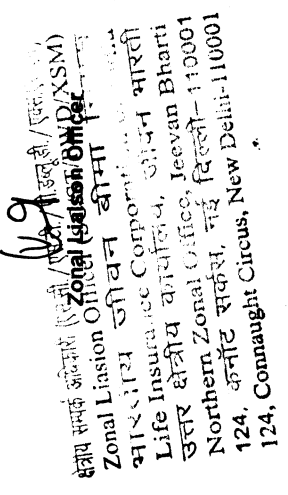 क्षेत्रीय सम्पर्क अधिकारी
Zonal Liaison Officer
Zonal Liasion Officer /XSM)
भारतीय जीवन बीमा
Life Insurance
उत्तर क्षेत्रीय कार्यालय, जीवन भारती
Northern Zonal Office, Jeevan Bharti
124, कनॉट सर्कस, नई दिल्ली-110001
124, Connaught Circus, New Delhi-110001